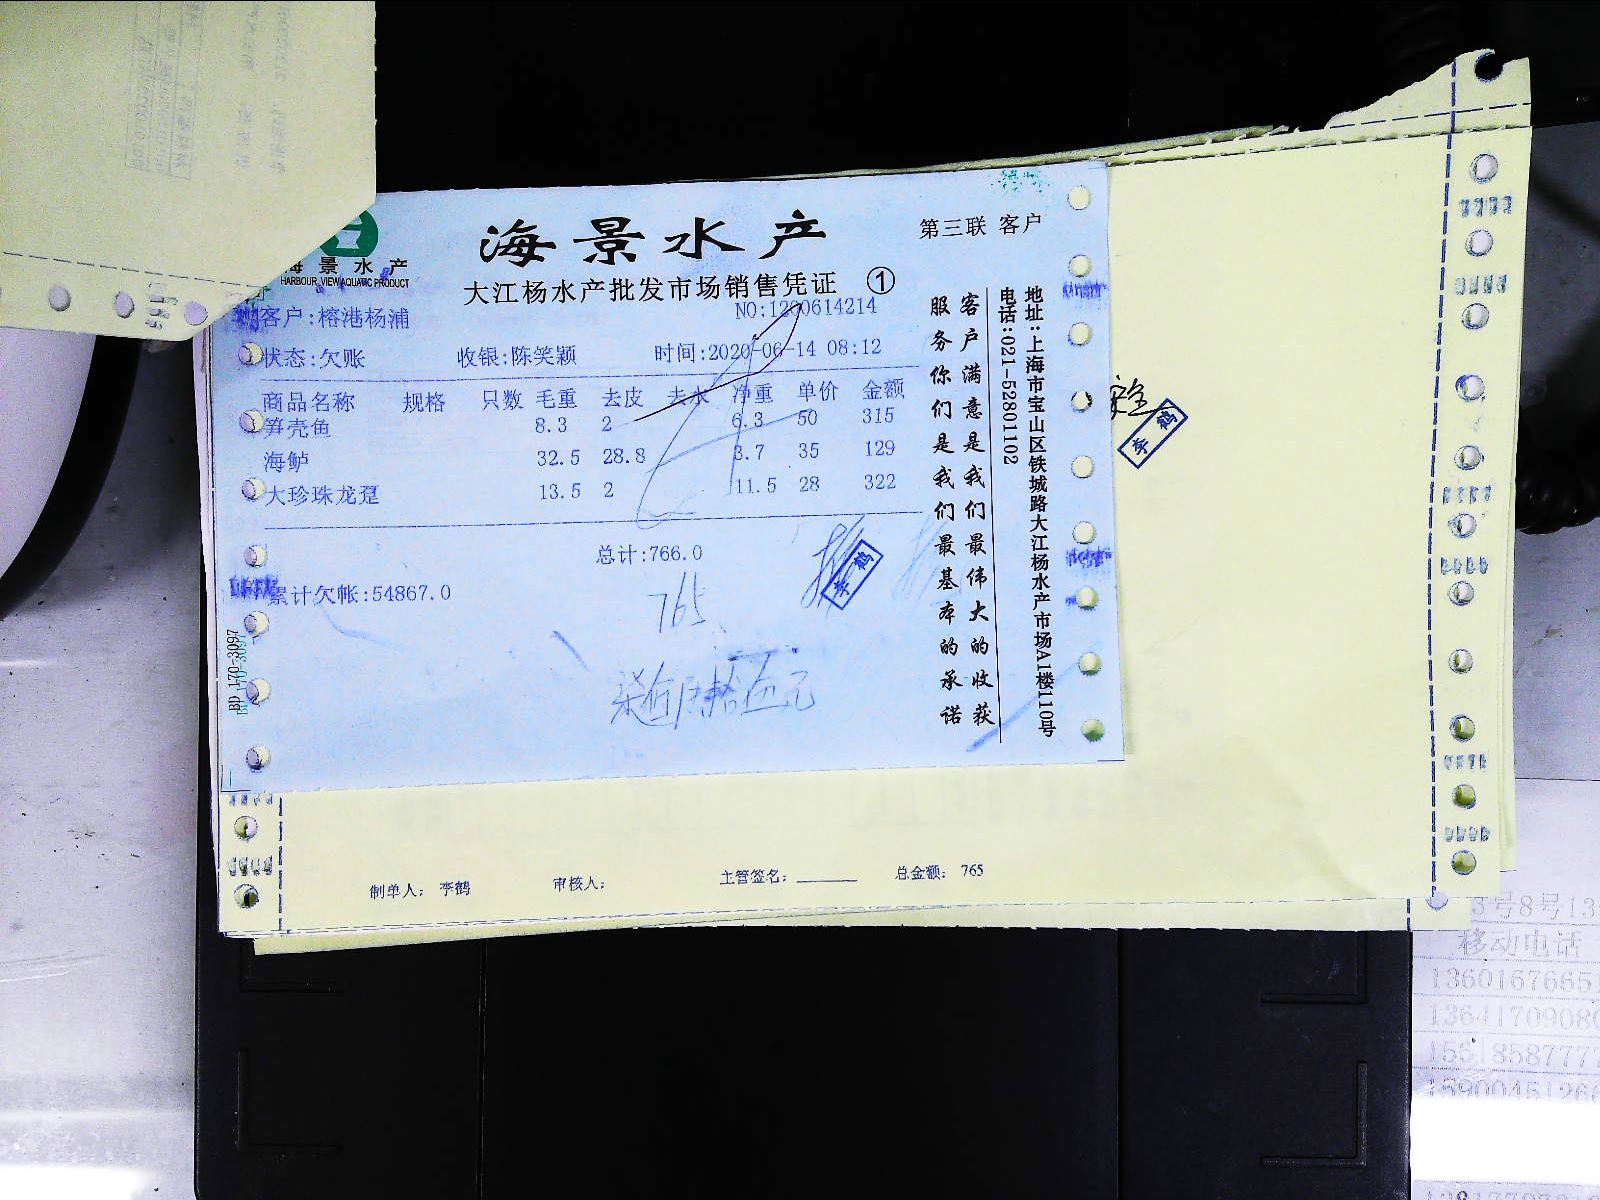 海景水产
第三联 客户
海景水产
HARBOUR VIEW AQUATIC PRODUCT
大江杨水产批发市场销售凭证 ①
客户:榕港杨浦
NO:1200614214
状态:欠账 收银:陈笑颖 时间:2020-06-14 08:12
商品名称 规格 只数 毛重 去皮 去水 净重 单价 金额
笋壳鱼 8.3 2 6.3 50 315
海鲈 32.5 28.8 3.7 35 129
大珍珠龙趸 13.5 2 11.5 28 322
总计:766.0
累计欠帐:54867.0
765
柒佰陆拾伍元
李鹤
客户满意是我们最伟大的收获
服务你们是我们最基本的承诺
地址:上海市宝山区铁城路大江杨水产市场A1楼110号
电话:021-52801102
李鹤
制单人: 李鹤 审核人: 主管签名: 总金额: 765
3号8号13
移动电话
1360167665
1364170908